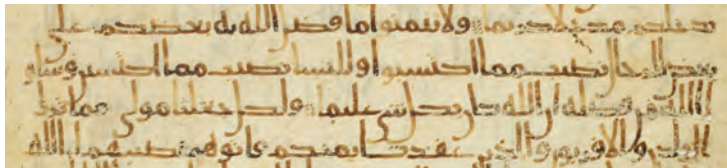 ندخلكم مدخلا كريما ولا تتمنوا ما فضل الله به بعضكم على
بعض للرجال نصيب مما اكتسبوا وللنسا نصيب مما اكتسبن وسلو
ا الله من فضله ان الله كان بكل شي عليما ولكل جعلنا مولى مما ترك
الولدن والاقربون والذين عقدت ايمنكم فاتوهم نصيبهم ان الله